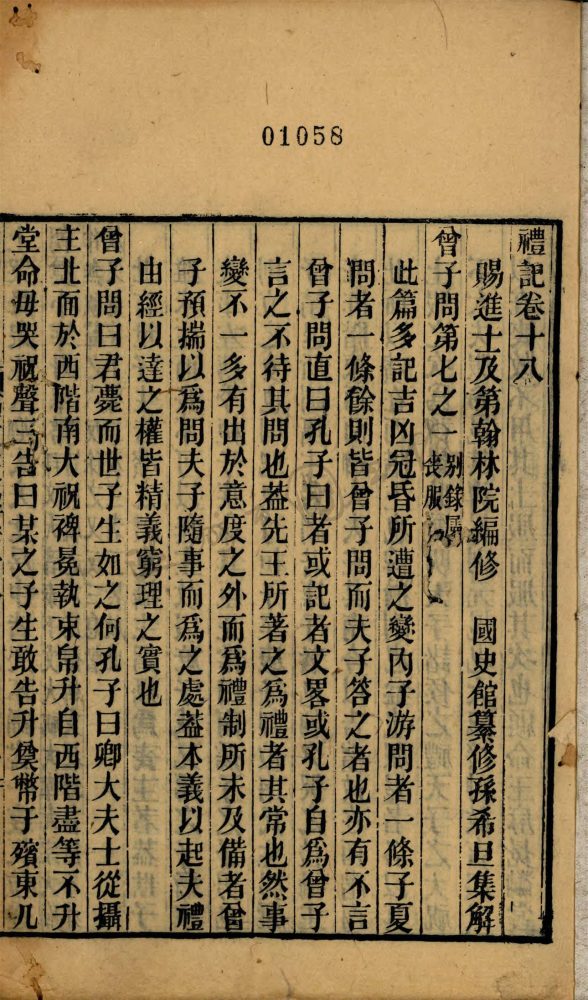 01058
禮記卷十八
賜進士及第翰林院編修 國史館纂修孫希旦集解
曾子問第七之一 别錄屬喪服
此篇多記吉凶冠昏所遭之變內子游問者一條子夏
問者一條餘則皆曾子問而夫子答之者也亦有不言
曾子問直曰孔子曰者或記者文畧或孔子自爲曾子
言之不待其問也葢先王所著之爲禮者其常也然事
變不一多有出於意度之外而爲禮制所未及備者曾
子預揣以爲問夫子隨事而爲之處葢本義以起夫禮
由經以達之權皆精義窮理之實也
曾子問曰君薨而世子生如之何孔子曰卿大夫士從攝
主北面於西階南大祝裨冕執束帛升自西階盡等不升
堂命毋哭祝聲三告曰某之子生敢告升奠幣于殯東几